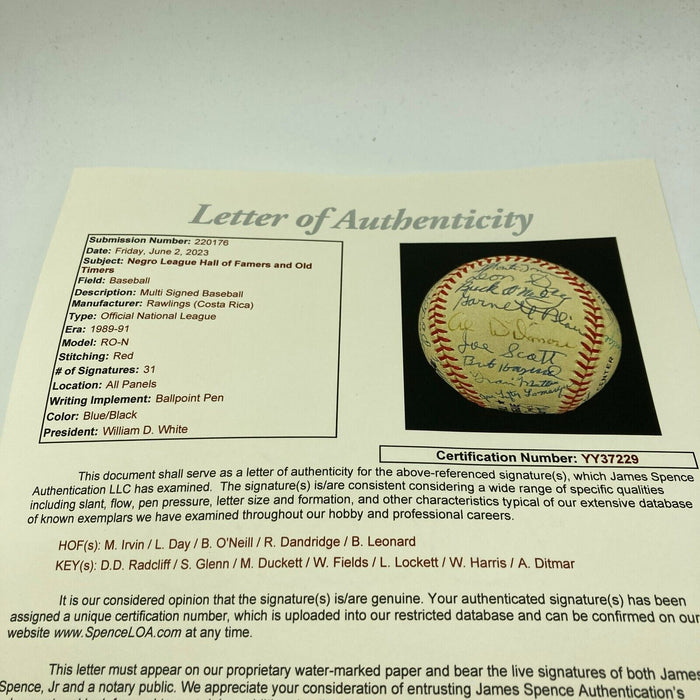 Letter of Authenticity
Submission Number: 220176
Date: Friday, June 2, 2023
Subject: Negro League Hall of Famers and Old
Timers
Field: Baseball
Description: Multi Signed Baseball
Manufacturer: Rawlings (Costa Rica)
Type: Official National League
Era: 1989-91
Model: RO-N
Stitching: Red
# of Signatures: 31
Location: All Panels
Writing Implement: Ballpoint Pen
Color: Blue/Black
President: William D. White
Buck O'Neil
Garnett Blair
Joe Scott
Certification Number: YY37229
This document shall serve as a letter of authenticity for the above-referenced signature(s), which James Spence
Authentication LLC has examined. The signature(s) is/are consistent considering a wide range of specific qualities
including slant, flow, pen pressure, letter size and formation, and other characteristics typical of our extensive database
of known exemplars we have examined throughout our hobby and professional careers.
HOF(s): M. Irvin / L. Day / B. O'Neill / R. Dandridge / B. Leonard
KEY(s): D.D. Radcliff / S. Glenn / M. Duckett / W. Fields / L. Lockett / W. Harris / A. Ditmar
It is our considered opinion that the signature(s) is/are genuine. Your authenticated signature(s) has been
assigned a unique certification number, which is uploaded into our restricted database and can be confirmed on our
website www.SpenceLOA.com at any time.
This letter must appear on our proprietary water-marked paper and bear the live signatures of both James
Spence, Jr and a notary public. We appreciate your consideration of entrusting James Spence Authentication's